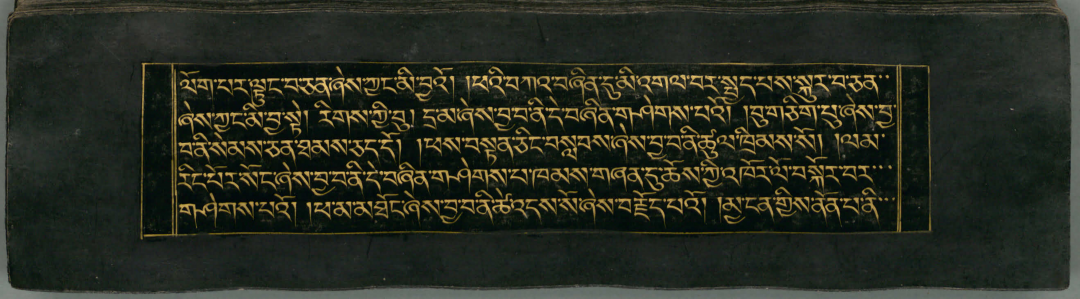 ལོག་པར་ལྟུང་བ་ཅན་ཞེས་ཀྱང་མི་བྱའོ། །ཕའི་བཀའ་བཞིན་དུ་མི་འགལ་བར་སྤྱད་པས་སྐུར་བ་ཅན་
ཞེས་ཀྱང་མི་བྱ་སྟེ། རིགས་ཀྱི་བུ། དྲམ་ཞེས་བྱ་བ་ནི་དེ་བཞིན་གཤེགས་པའོ། །བུ་གཅིག་པུ་ཞེས་བྱ་
བ་ནི་སེམས་ཅན་ཐམས་ཅད་དོ། །ཕས་བསྟན་ཅིང་བསླབས་ཞེས་བྱ་བ་ནི་ཚུལ་ཁྲིམས་སོ། །ལམ་
རིང་པོར་སོང་ཞེས་བྱ་བ་ནི་དེ་བཞིན་གཤེགས་པ་ཁམས་གཞན་དུ་ཆོས་ཀྱི་འཁོར་ལོ་བསྐོར་བར་
གཤེགས་པའོ། །ཕ་མ་མཐོང་ཞེས་བྱ་བ་ནི་ཚེ་འདས་སོ་ཞེས་བརྗོད་པའོ། །མྱ་ངན་གྱིས་ནོན་པ་ནི་